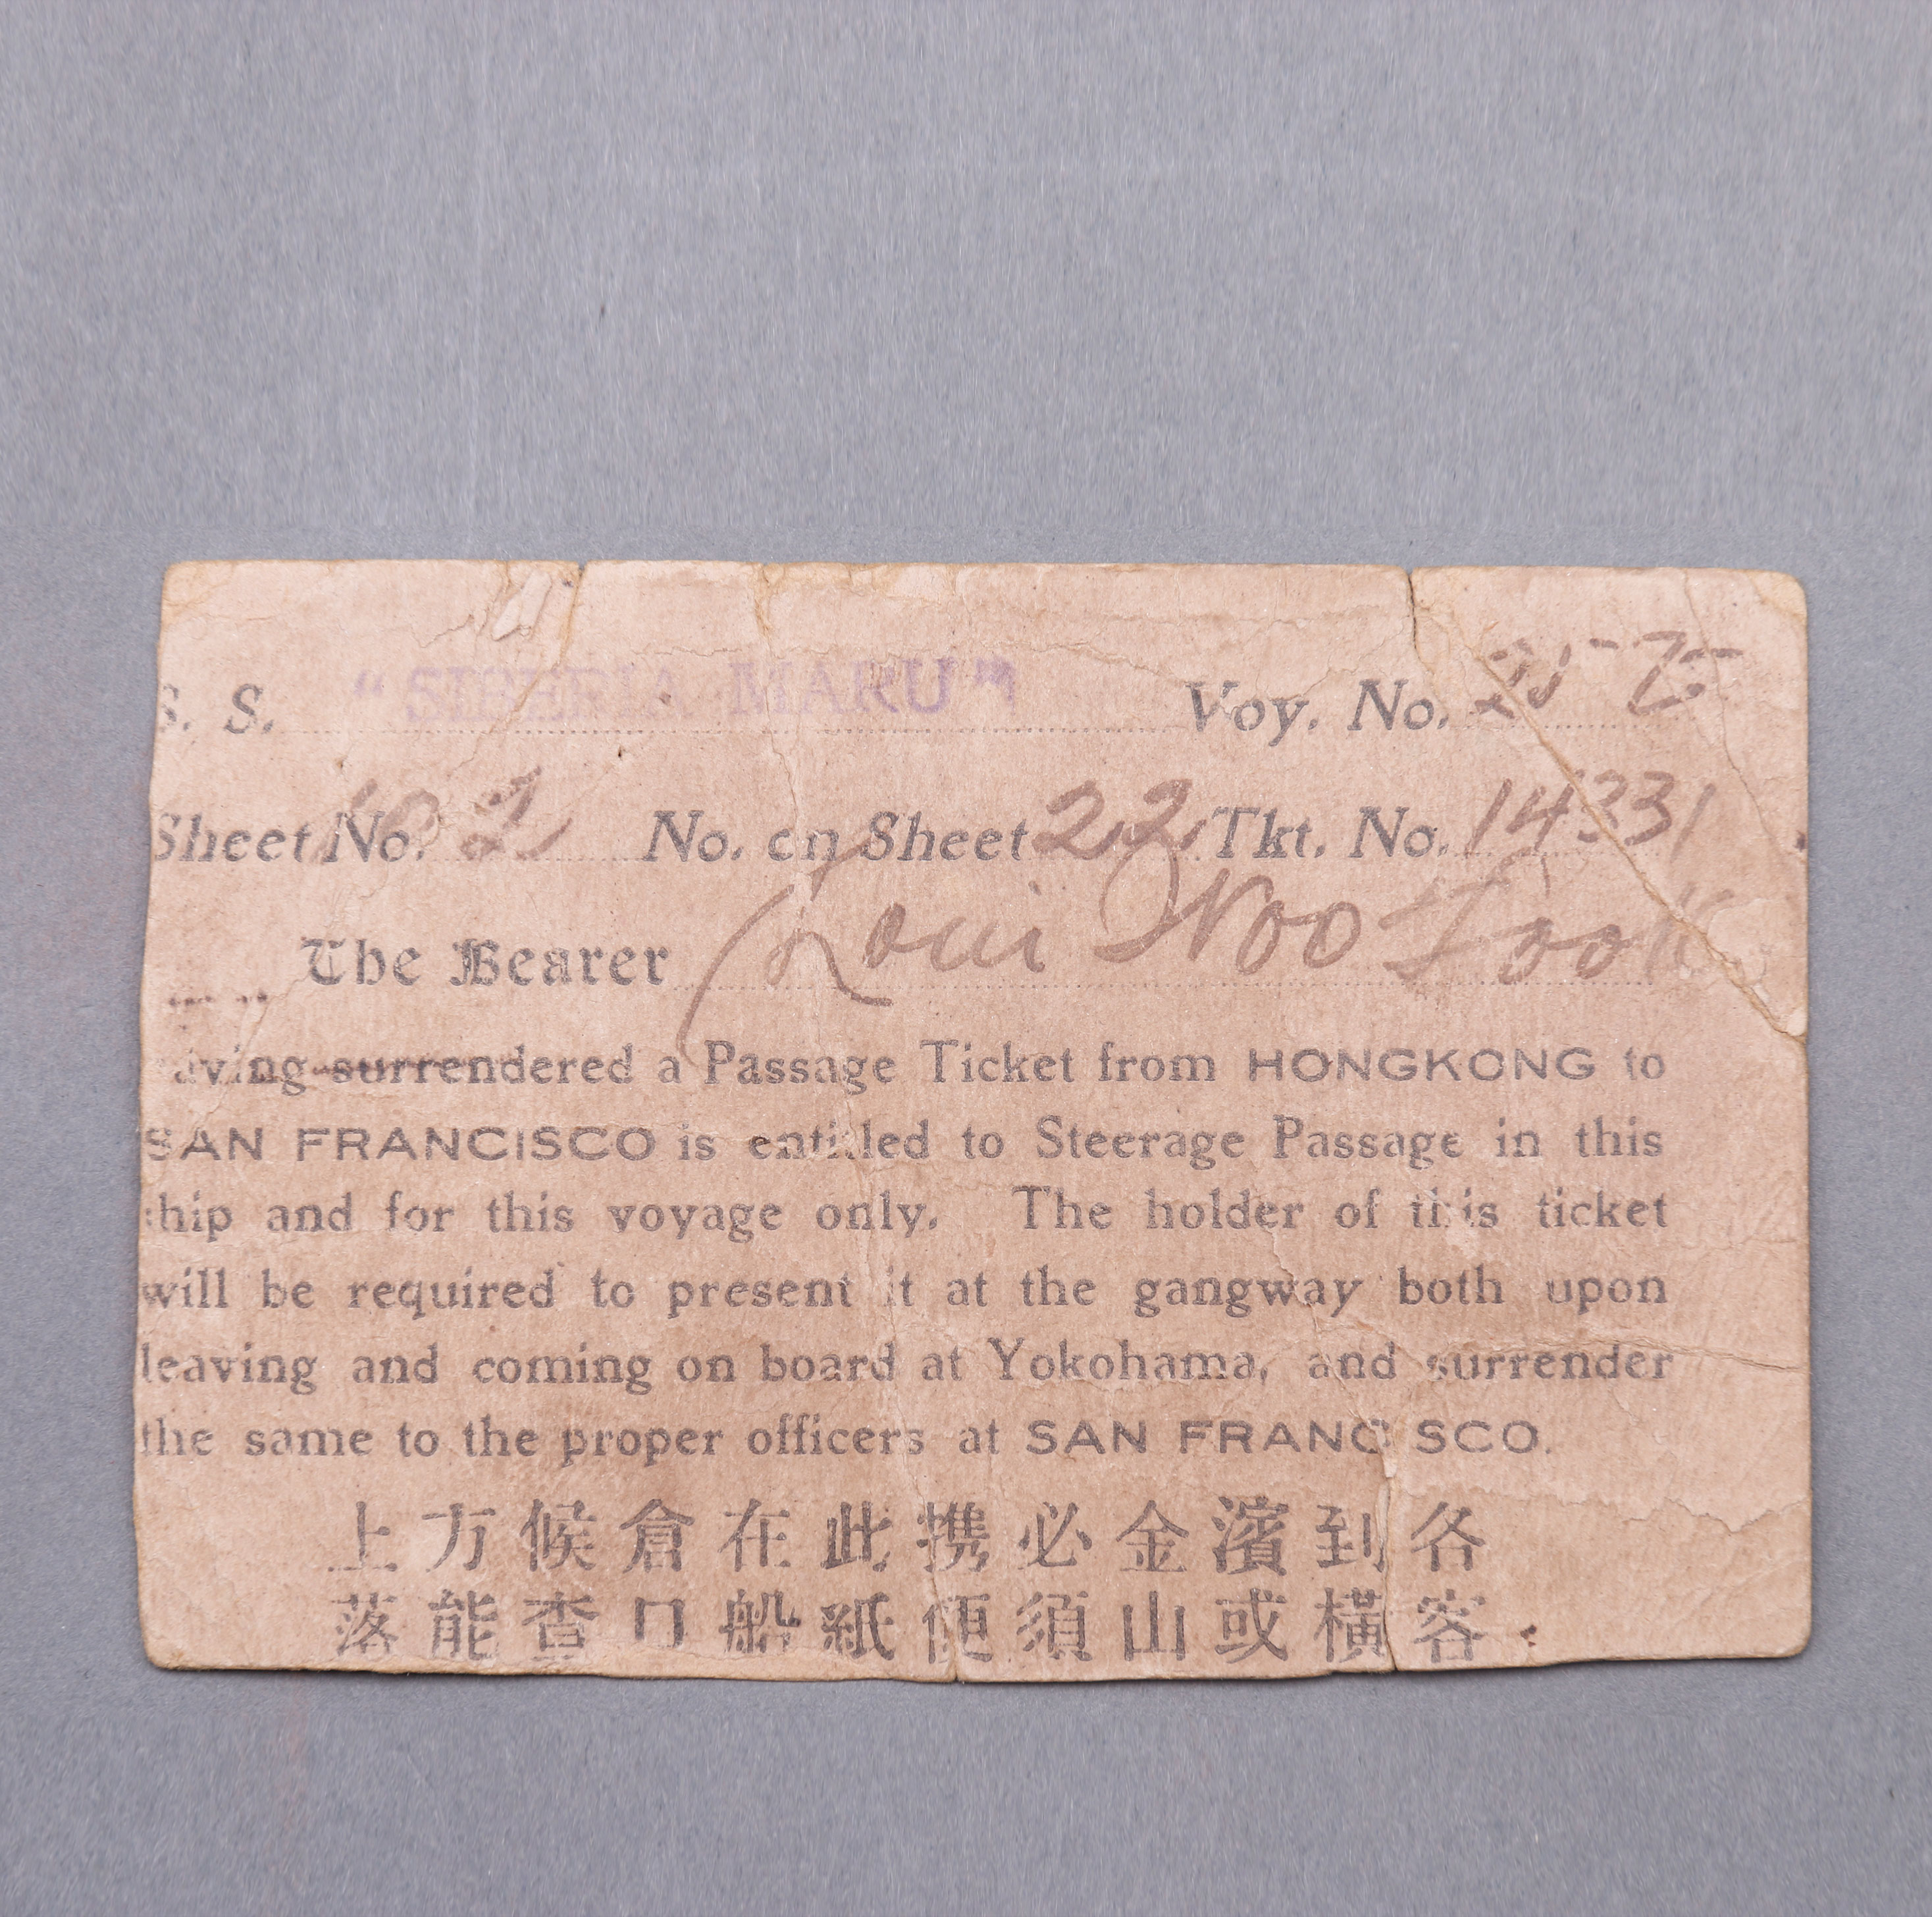 S. S. "SIBERIA MARU" Voy. No.
Sheet No. No. on Sheet 22 Tkt. No. 14331
The Bearer Loui Woo Foo
aving surrendered a Passage Ticket from HONGKONG to
SAN FRANCISCO is entitled to Steerage Passage in this
hip and for this voyage only. The holder of this ticket
will be required to present it at the gangway both upon
leaving and coming on board at Yokohama, and surrender
the same to the proper officers at SAN FRANCISCO.
各客
到橫
濱或
金山
必須
携便
此紙
在船
倉口
候查
方能
上落